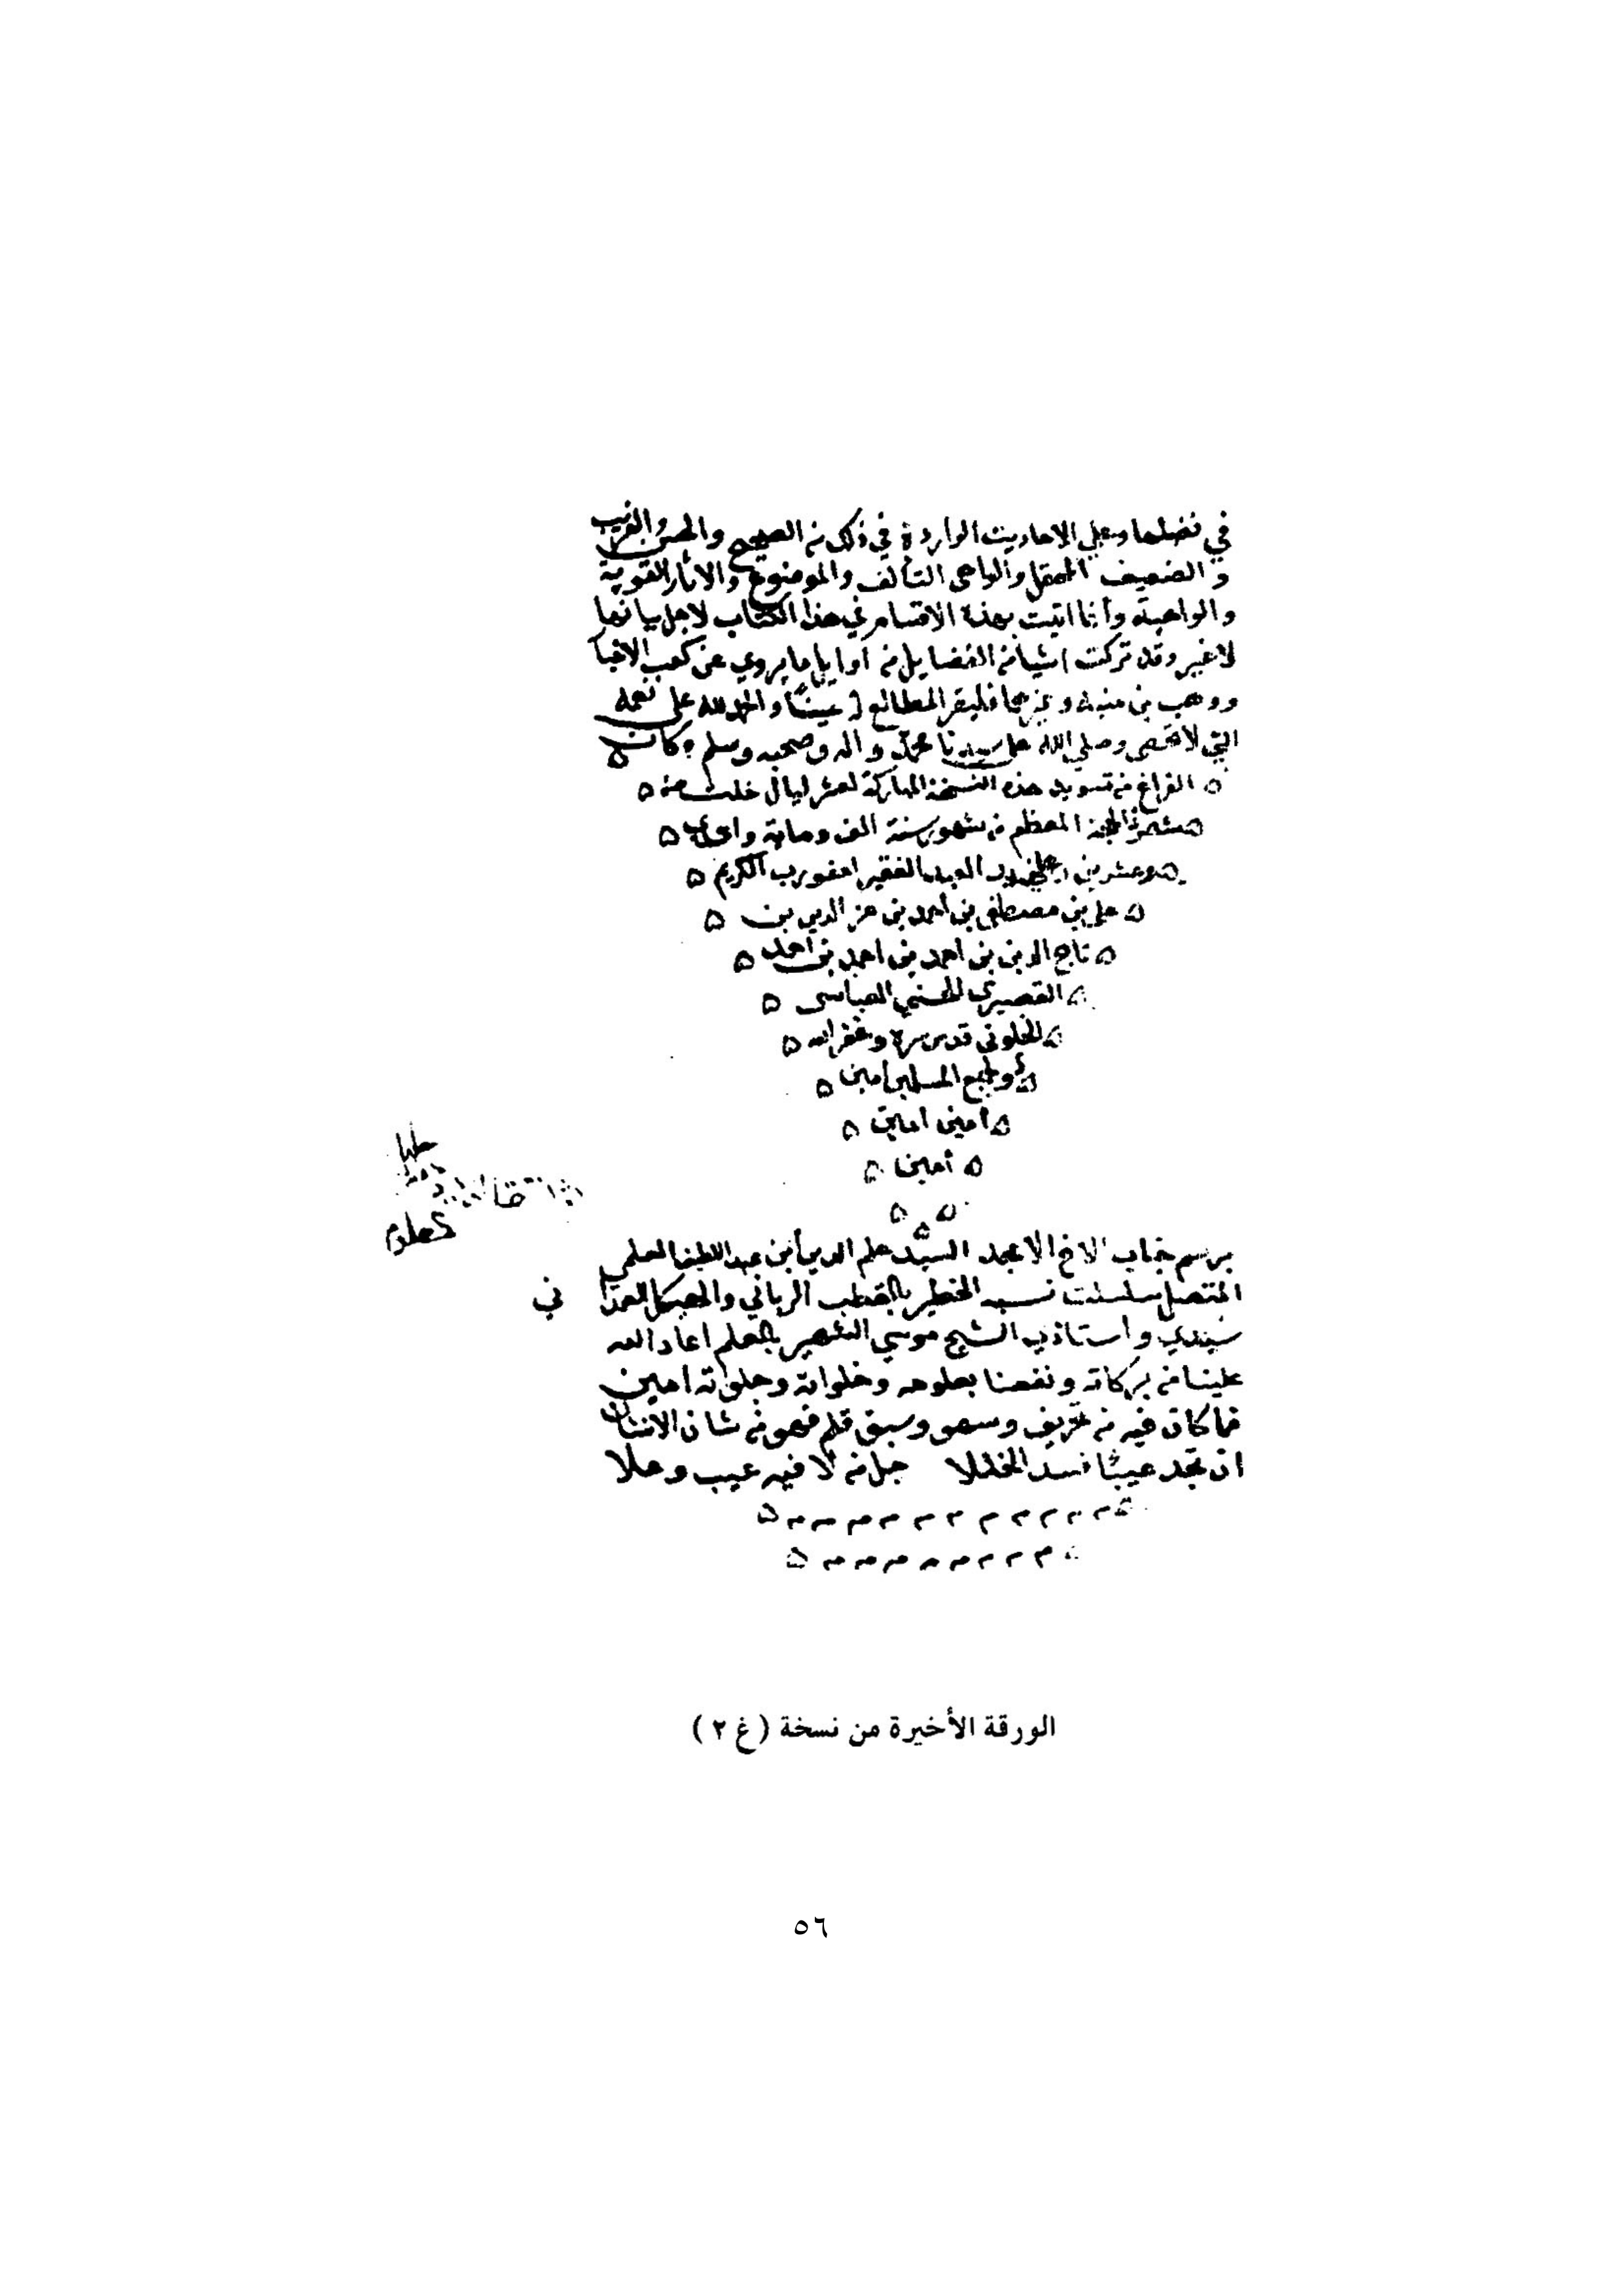 في فضلها وعلي الاحاديث الواردة في ذلك من الصحيح والحسن والغريب
والضعيف والواهى التألف والموضوع والاثار القوية
والواهية وأنا اتيت بهذه الاقسام في هذا الكتاب لاجل بيانها
لاغير وقد تركت اشيا من الفضايل من اوايل ما يروي عن كعب الاخبا
ووهب بن منبه وغيرهما فليقر المطالع عينًا والحمد لله على نعمه
التي لا تحصى وصلي الله على سيدنا محمد واله وصحبه وسلم وكان
الفراغ من تسويد هذه النسخة المباركة لعشر ليال خلت من
شهر ذالحجة المعظم من شهور سنة الف وماية واحدى
وعشرين العبد الفقير لعفو رب الكريم
علي بن مصطفى بن احمد بن عز الدين بن
تاج الدين بن احمد بن احمد بن احمد
القصيري الحسني العباسى
الخلوتي قدس سره وغفر الله
له ولجميع المسلمين امين
امين امين
أمين
برسم جناب الاخ الامجد السيّد علم الدين أبن عبد اللطيف العلمي
المتصل سلسلت نسبه الخطير بالقطب الرباني والهيكل الصمدا ني
سيدي واستاذي الشيخ موسي الشهير بالعلم اعاد الله
علينا من بركاته ونفعنا بعلومه وخلواته وجلواته امين
فما كان فيه من تحريف وسهو وسبق قلم فهو من شان الانسان
ان تجد عيبًا فسد الخللا جل من لا فيه عيب وعلا
الورقة الأخيرة من نسخة (غ ٢)
٥٦